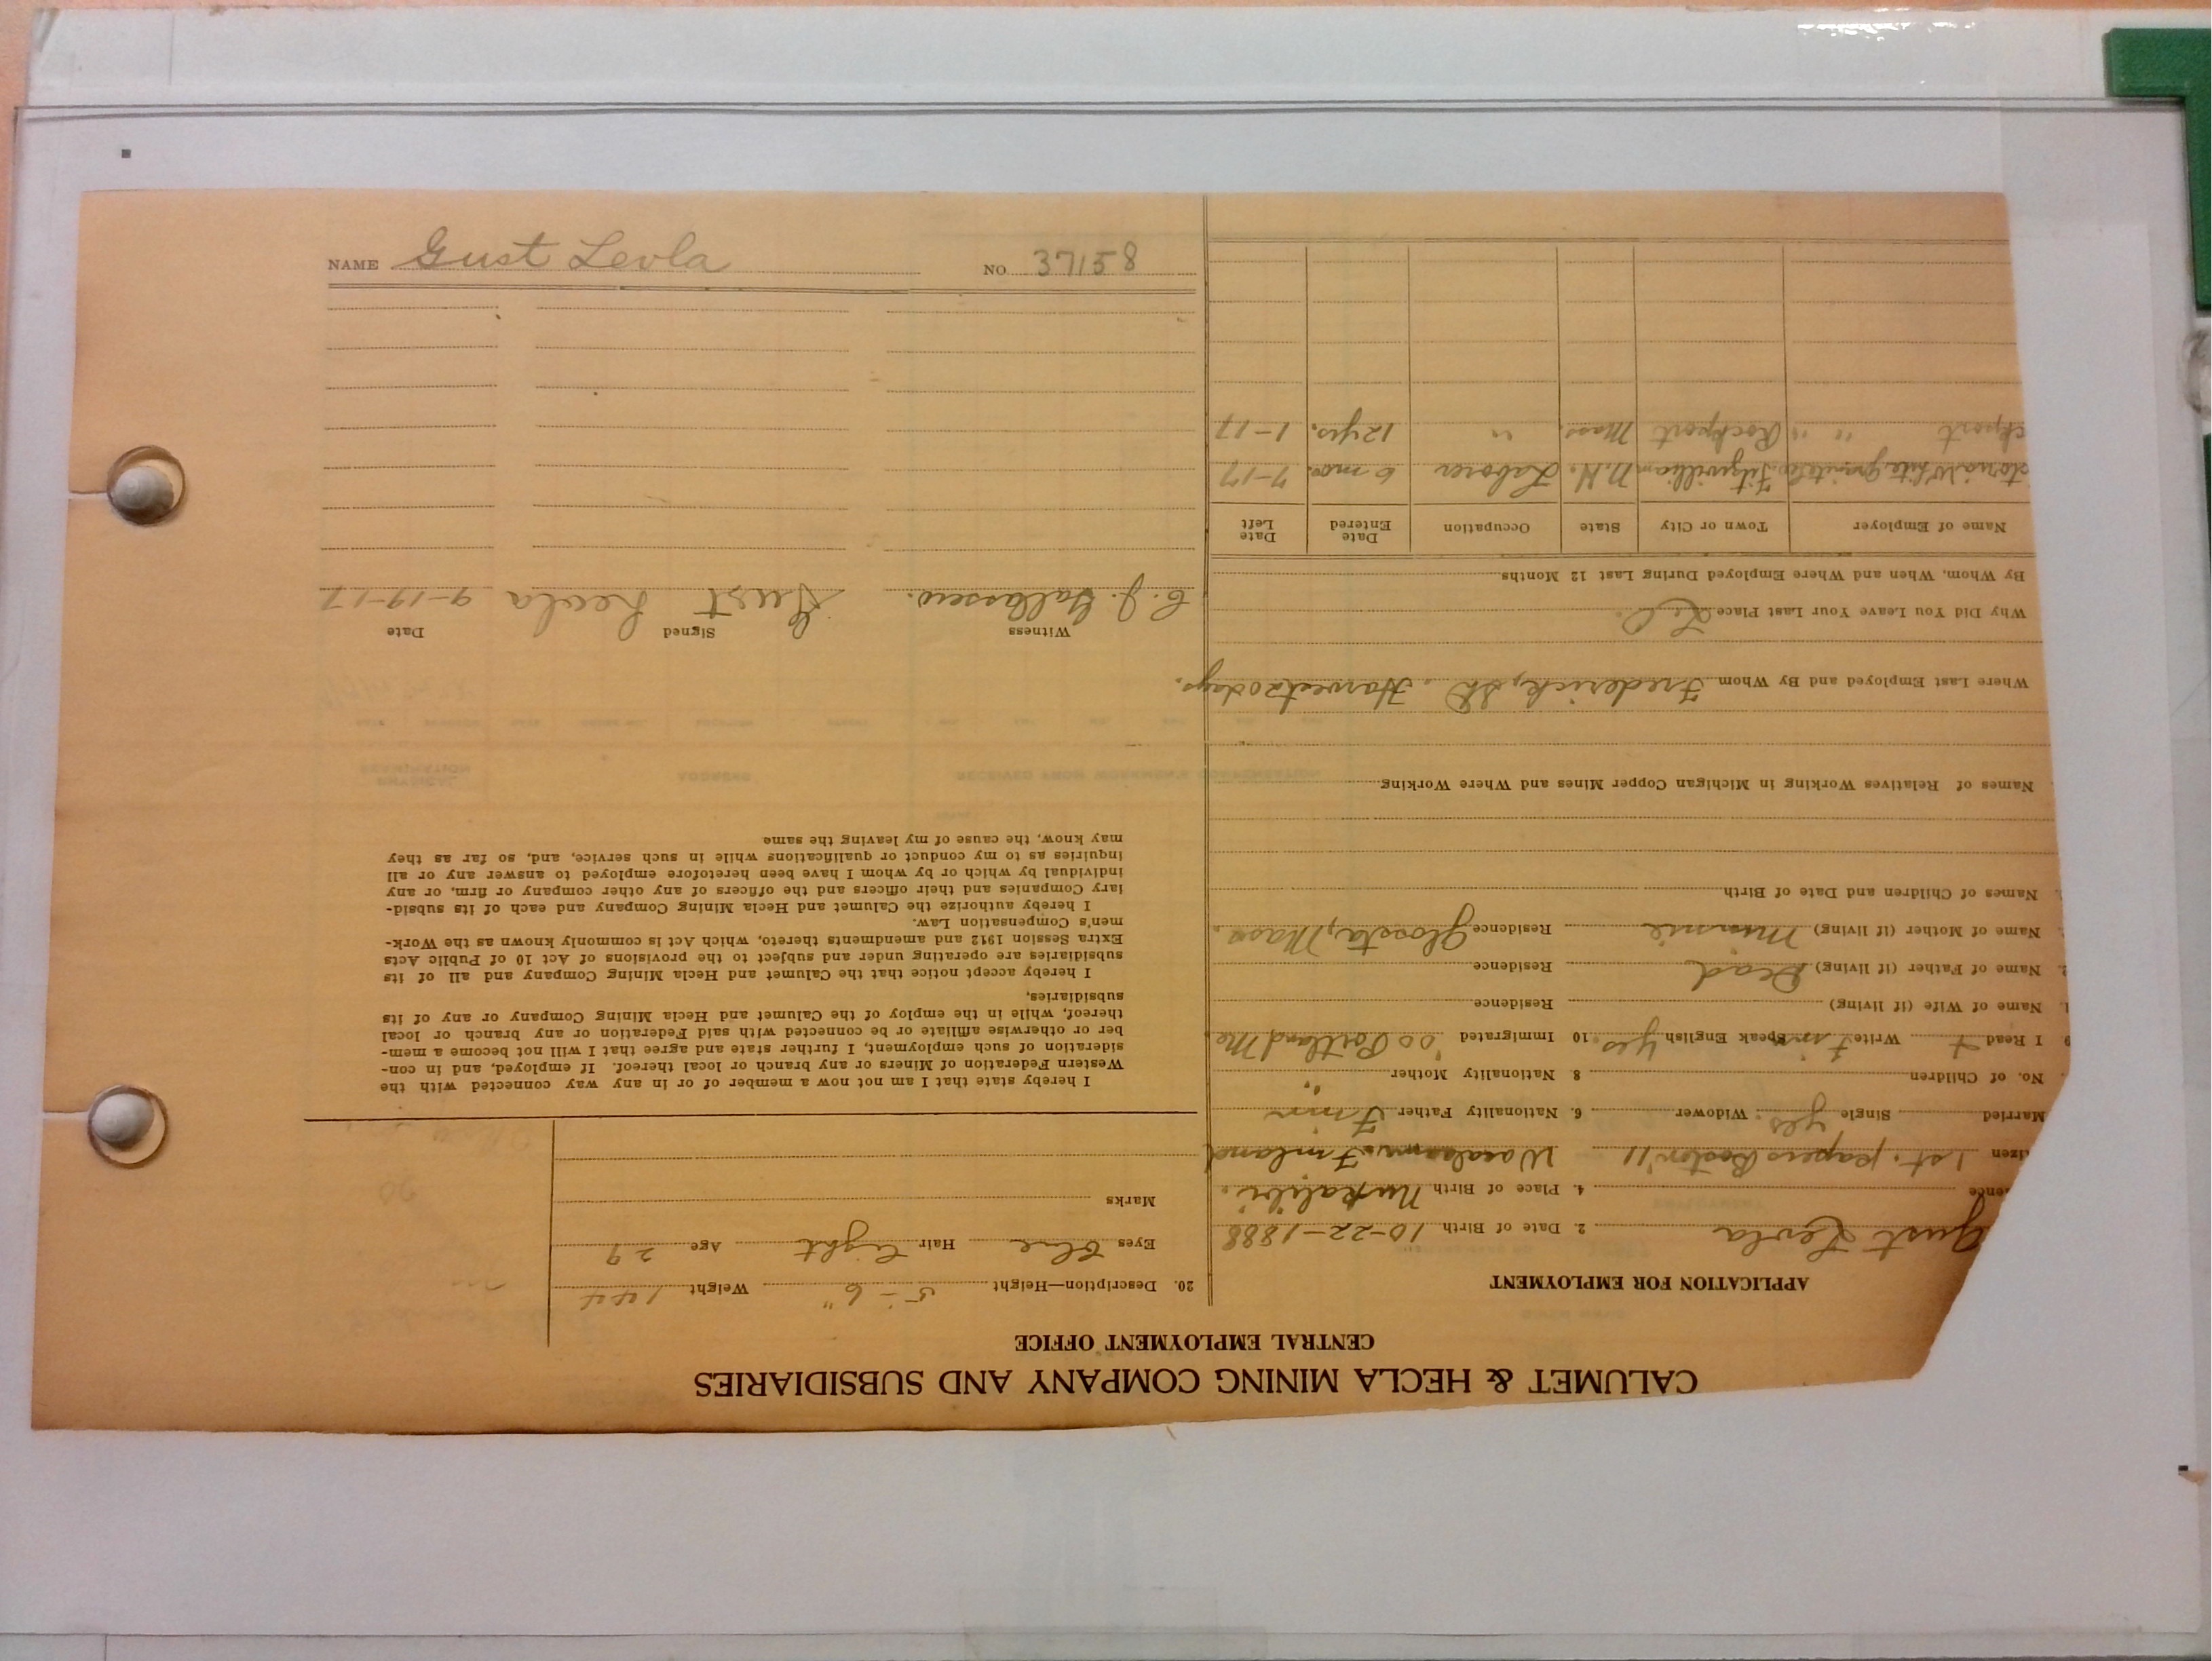 NAME Gust Levla NO 37158
CALUMET & HECLA MINING COMPANY AND SUBSIDIARIES
CENTRAL EMPLOYMENT OFFICE
APPLICATION FOR EMPLOYMENT
Gust Levla 2. Date of Birth 10-22-1888
ence 4. Place of Birth
izen 1st. papers Boston '11 Finland
Married Single yes. Widower 6. Nationality Father Finn
No. of Children 8 Nationality Mother "
9 I Read Write Finn Speak English yes. 10 Immigrated '00 Portland Me.
1. Name of Wife (if living) Residence
2. Name of Father (if living) Dead Residence
Name of Mother (if living) Minnie Residence Glosta, Mass.
Names of Children and Date of Birth
Names of Relatives Working in Michigan Copper Mines and Where Working
Where Last Employed and By Whom Frederick, SD. Harvest 20 days.
Why Did You Leave Your Last Place
By Whom, When and Where Employed During Last 12 Months
Name of Employer Town or City State Occupation Date Entered Date Left
White Granite Co Fitzwilliam N.H. Laborer 6 mos. 7-17
ckport " " Rockport Mass. " 12 yrs. 1-17
20. Description—Height 5'-6" Weight 144
Eyes Blue Hair Light Age 29
Marks
I hereby state that I am not now a member of or in any way connected with the
Western Federation of Miners or any branch or local thereof. If employed, and in con-
sideration of such employment, I further state and agree that I will not become a mem-
ber or otherwise affiliate or be connected with said Federation or any branch or local
thereof, while in the employ of the Calumet and Hecla Mining Company or any of its
subsidiaries,
I hereby accept notice that the Calumet and Hecla Mining Company and all of its
subsidiaries are operating under and subject to the provisions of Act 10 of Public Acts
Extra Session 1912 and amendments thereto, which Act is commonly known as the Work-
men's Compensation Law.
I hereby authorize the Calumet and Hecla Mining Company and each of its subsid-
iary Companies and their officers and the officers of any other company or firm, or any
individual by which or by whom I have been heretofore employed to answer any or all
inquiries as to my conduct or qualifications while in such service, and, so far as they
may know, the cause of my leaving the same
Witness Signed Date
C. J. Gust Levla 9-19-17